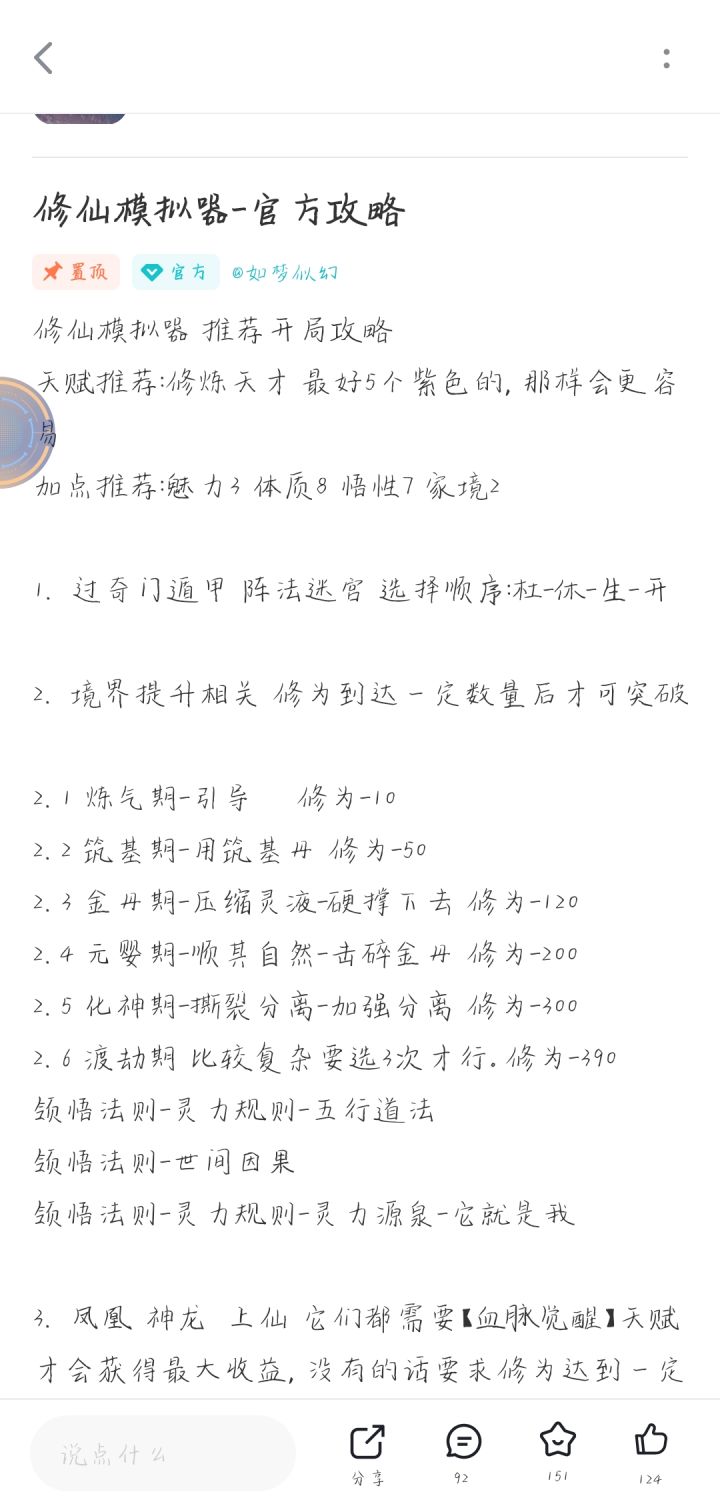 修仙模拟器-官方攻略
置顶 官方 @如梦似幻
修仙模拟器 推荐开局攻略
天赋推荐:修炼天才 最好5个紫色的, 那样会更容
易
加点推荐:魅力3 体质8 悟性7 家境2
1. 过奇门遁甲 阵法迷宫 选择顺序:杜-休-生-开
2. 境界提升相关 修为到达一定数量后才可突破
2.1 炼气期-引导 修为-10
2.2 筑基期-用筑基丹 修为-50
2.3 金丹期-压缩灵液-硬撑下去 修为-120
2.4 元婴期-顺其自然-击碎金丹 修为-200
2.5 化神期-撕裂分离-加强分离 修为-300
2.6 渡劫期 比较复杂要选3次才行。修为-390
领悟法则-灵力规则-五行道法
领悟法则-世间因果
领悟法则-灵力规则-灵力源泉-它就是我
3. 凤凰 神龙 上仙 它们都需要【血脉觉醒】天赋
才会获得最大收益, 没有的话要求修为达到一定
说点什么
分享 92 151 124